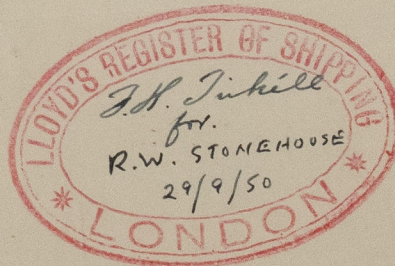 LLOYD'S REGISTER OF SHIPPING
F.H.
for.
R.W. STONEHOUSE
29/9/50
LONDON